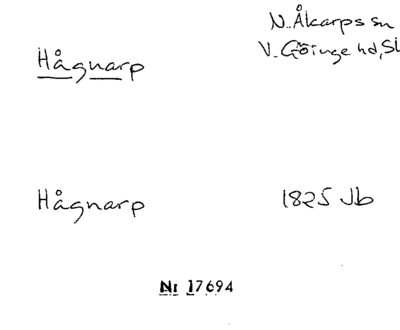 N. Åkarps sn
Hågnarp
V. Göinge hd, Sk
Hågnarp
1825 Jb
Nr 17694